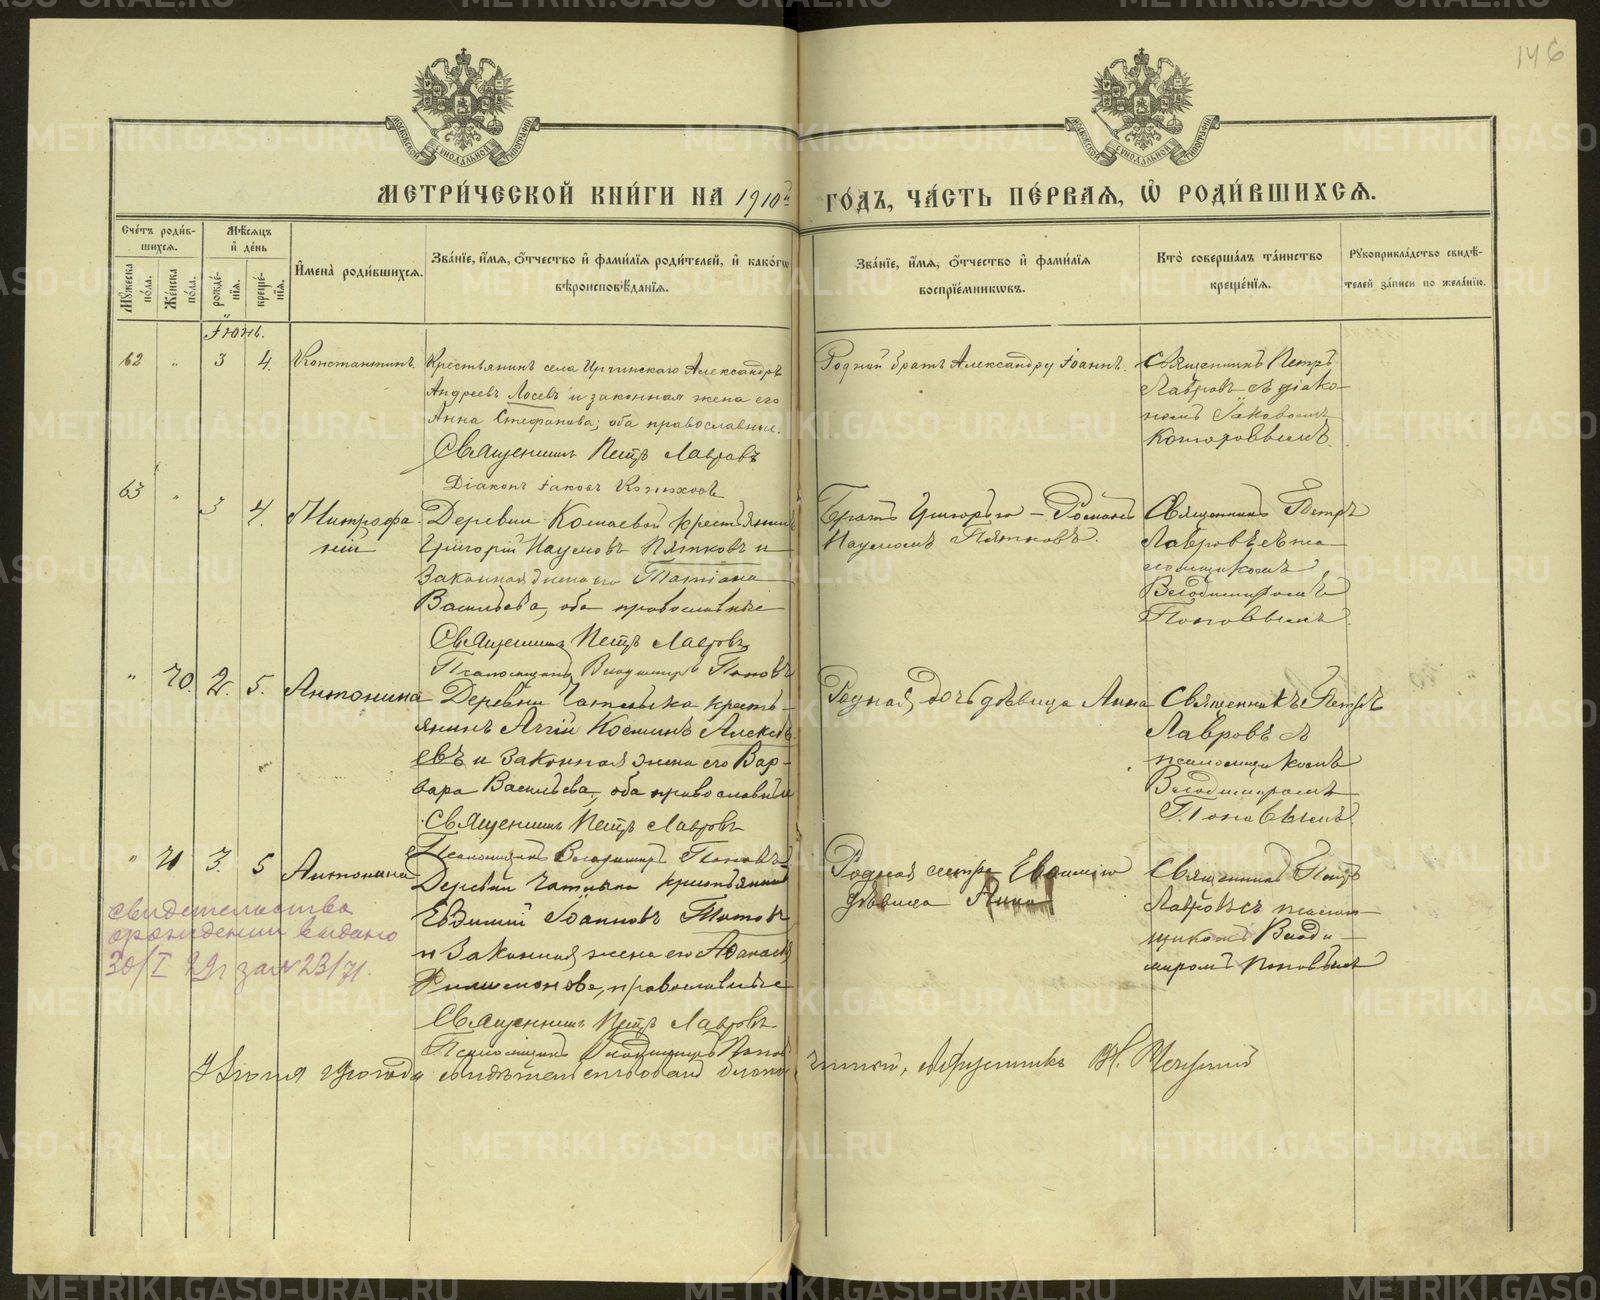 146
МОСКОВСКОЙ СѴНОДАЛЬНОЙ ТИПОГРАФІИ
МОСКОВСКОЙ СѴНОДАЛЬНОЙ ТИПОГРАФІИ
МЕТРИ́ЧЕСКОЙ КНИ́ГИ НА 1910й ГО́ДЪ, ЧА́СТЬ ПЕ́РВАЯ, Ѡ҆ РОДИ́ВШИХСЯ.
Сче́тъ роди́в-
шихся.
Мѣ́сяцъ
и҆ де́нь
Му́жеска по́ла.
Же́нска по́ла.
рожде́-
нїя.
креще́-
нїя.
И҆мена̀ роди́вшихся.
Зва́нїе, и҆́мя, ѻ҆́тчество и҆ фами́лїя роди́телей, и҆ како́гѡ
вѣроисповѣ́данїя.
Зва́нїе, и҆́мя, ѻ҆́тчество и҆ фами́лїя
воспрїе́мниковъ.
Кто̀ соверша́лъ та́инство
креще́нїя.
Рꙋкоприкла́дство свидѣ́-
телей за́писи по жела́нїю.
Іюнь.
62 " 3 4. Константинъ.
Крестьянинъ села Иргинскаго Александръ
Андреевъ Лосевъ и законная жена его
Анна Стефанова, оба православные.
Священникъ Петръ Лавровъ
Діаконъ Іаковъ
Родной братъ Александру Іоаннъ.
Священникъ Петръ
Лавровъ съ діако-
номъ Іаковомъ
63 " 3 4. Митрофа-
ній
Деревни крестьянинъ
Григорій Наумовъ Пятковъ и
законная жена его Татіана
Васильева, оба православные
Священникъ Петръ Лавровъ
Псаломщикъ Владимиръ Поповъ
Братъ Григорію - Романъ
Наумовъ Пятковъ.
Священникъ Петръ
Лавровъ съ пса-
ломщикомъ
Владимиромъ
Поповымъ
" 70. 2. 5. Антонина
Деревни кресть-
янинъ Косминъ Алексѣ-
евъ и законная жена его Вар-
вара Васильева, оба православные
Священникъ Петръ Лавровъ
Псаломщикъ Владимиръ Поповъ
Родная дочь дѣвица Анна
Священникъ Петръ
Лавровъ съ
псаломщикомъ
Владимиромъ
Поповымъ.
" 71 3. 5 Антонина
Деревни крестьянинъ
Евдимій Іоанновъ Титовъ
и законная жена его
Филимонова, православные
Священникъ Петръ Лавровъ
Псаломщикъ Владимиръ Поповъ
Родная сестра
дѣвица Анна
Священникъ Петръ
Лавровъ съ псалом-
щикомъ Влади-
миромъ Поповымъ
свидетельство
о рождении выдано
30/I 29г за № 23/71.